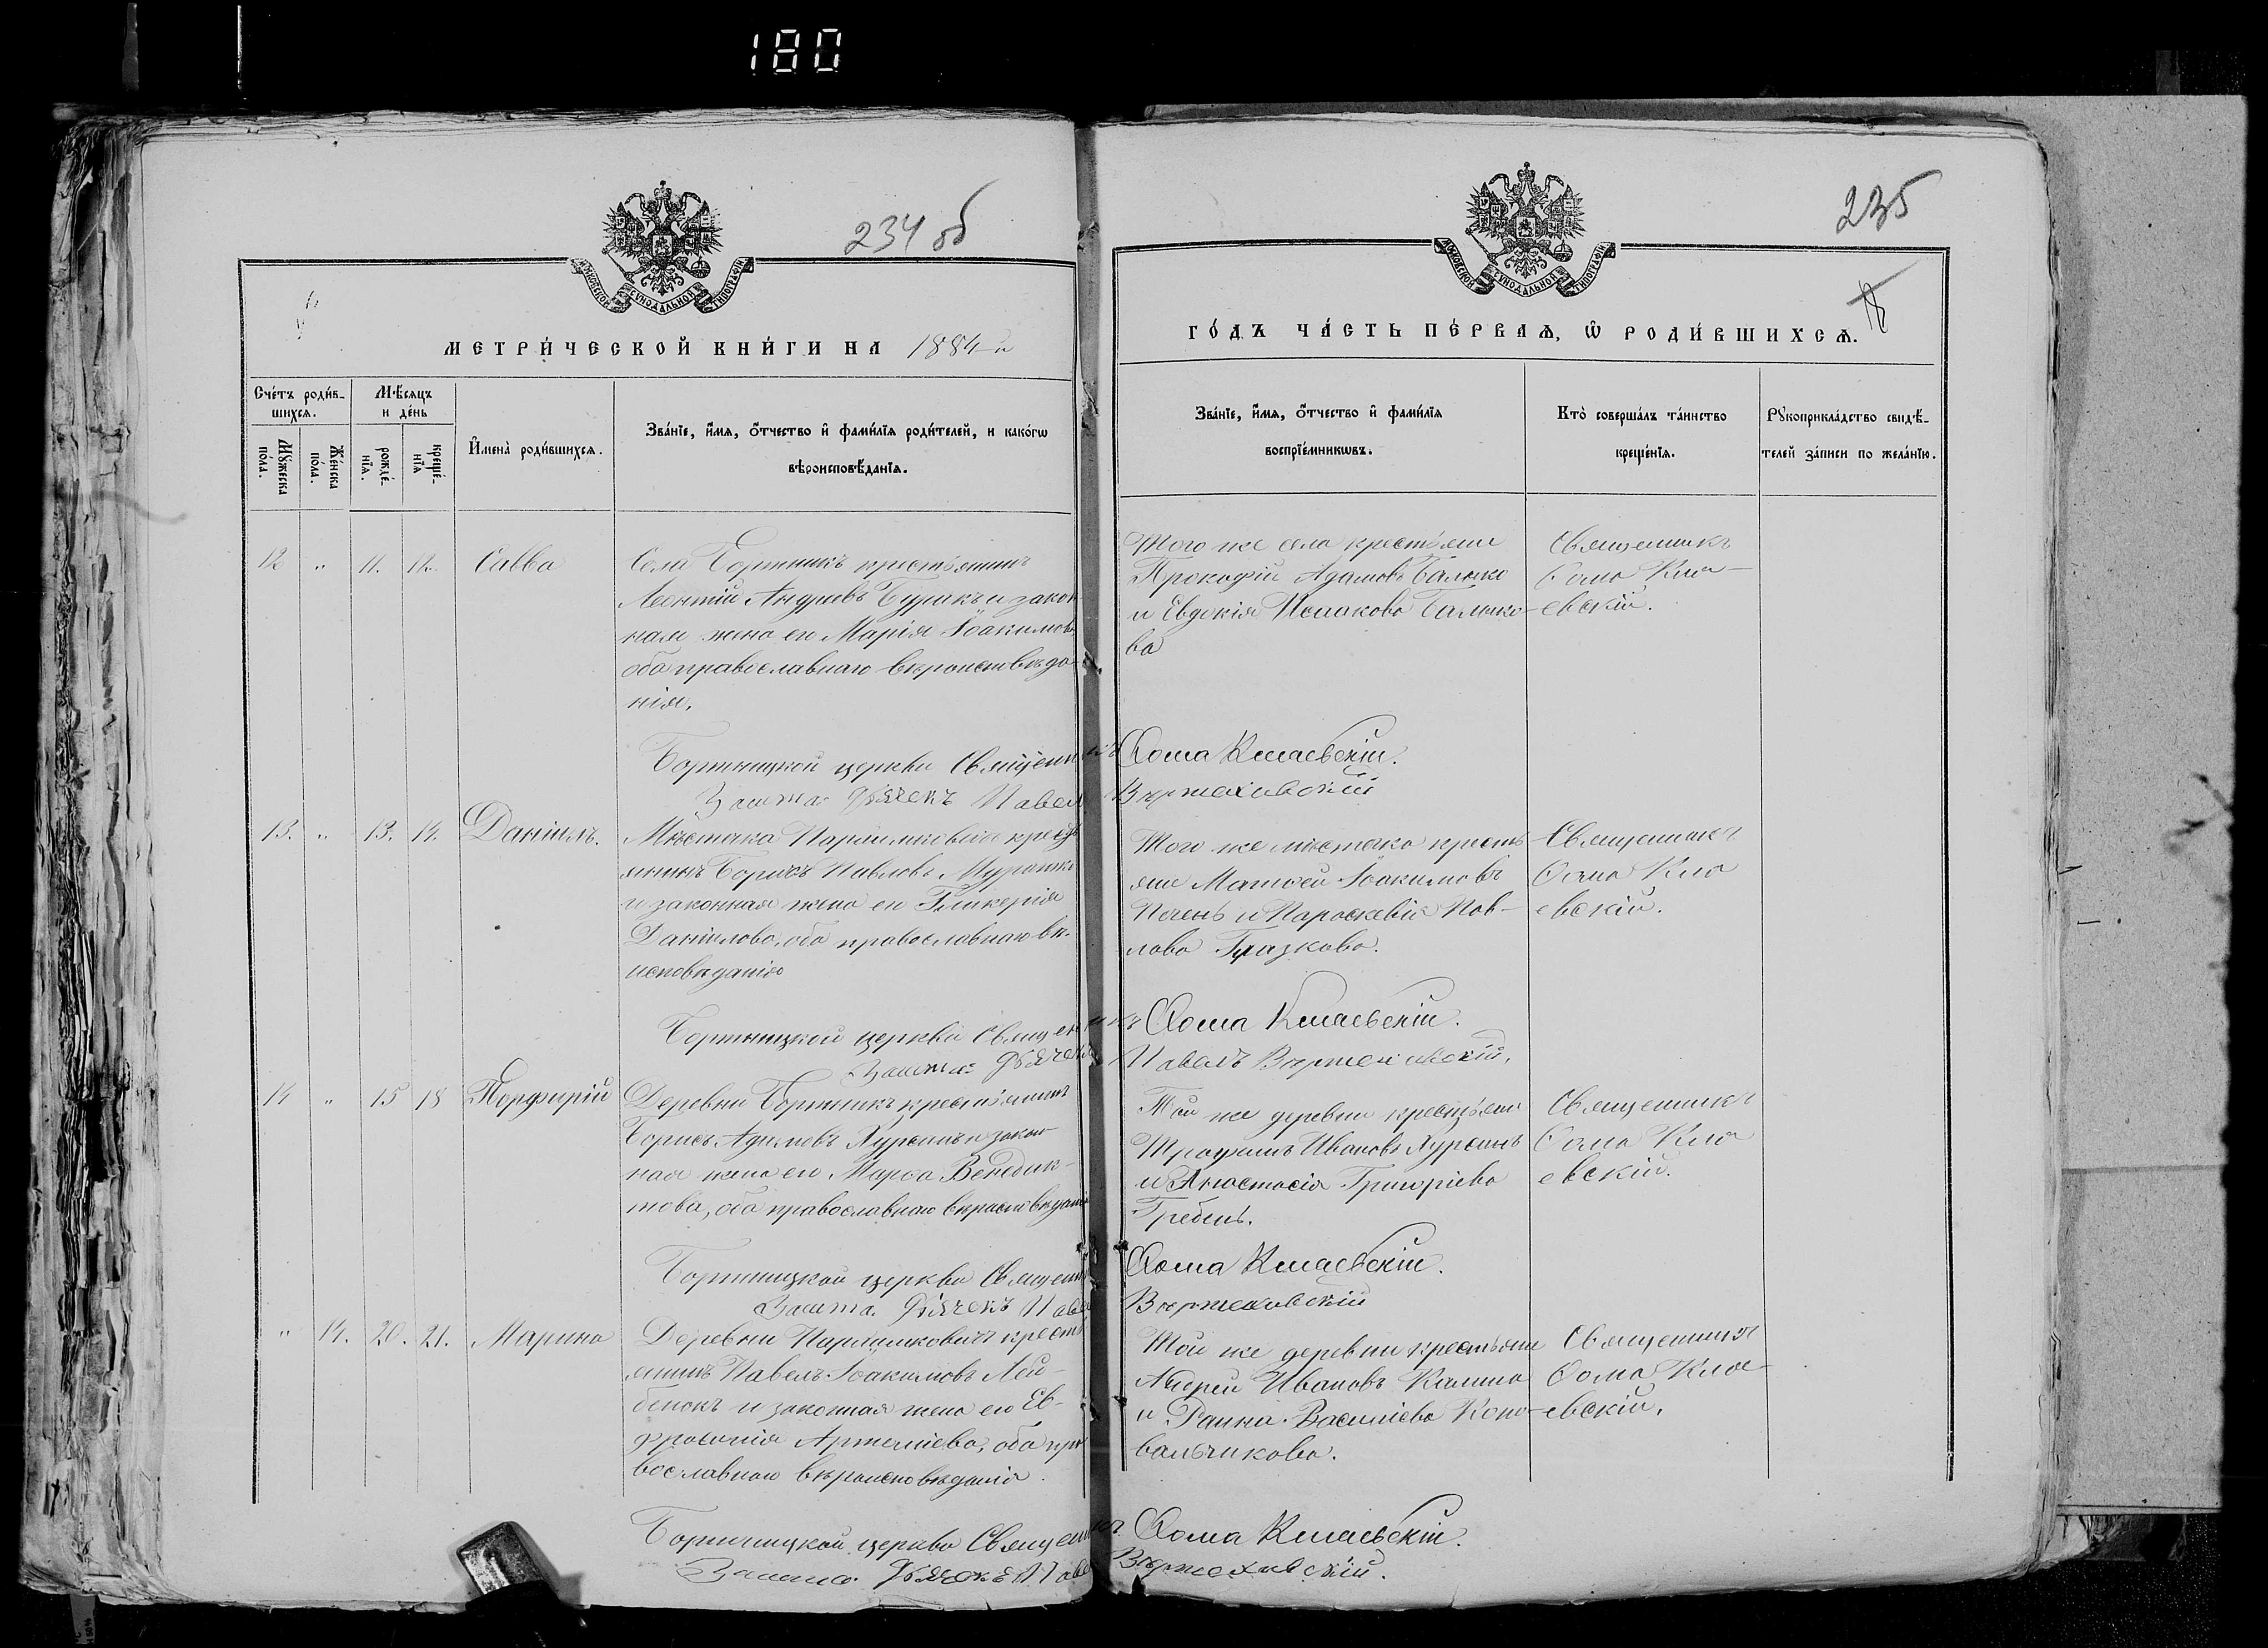 180
234 об
235
МОСКОВСКОЙ СѴНОДАЛЬНОЙ ТИПОГРАФІИ
МОСКОВСКОЙ СѴНОДАЛЬНОЙ ТИПОГРАФІИ
18
МЕТРИ́ЧЕСКОЙ КНИ́ГИ НА 1884-й
ГО́ДЪ ЧА́СТЬ ПЕ́РВАѦ, Ѡ҆ РОДИ́ВШИХСѦ.
Сче́тъ роди́в-
шихсѧ.
Мѣ́сѧцъ
и де́нь
Мꙋ́жеска
по́ла.
Же́нска
по́ла.
рожде́-
нїѧ.
креще́-
нїѧ
И҆мена̀ роди́вшихсѧ.
Зва́нїе, и҆́мѧ, ѻ҆́тчество и҆ фами́лїѧ роди́телей, и како́гѡ
вѣроисповѣ́данїѧ.
Зва́нїе, и҆́мѧ, ѻ҆́тчество и҆ фами́лїѧ
воспрїе́мникѡвъ.
Кто̀ соверша́лъ та́инство
креще́нїѧ.
Рꙋкоприкла́дство свидѣ́-
телей за́писи по жела́нїю.
12 „ 11. 12. Савва
Села Бортникъ крестьянинъ
Леонтій Андреевъ Бурикъ и закон
ная жена его Марія Іоакимов
оба православнаго вѣроисповѣда-
нія.
Того же села крестьяне
Прокофій Адамовъ Балыко
и Евдокія Исаакова Балыко-
ва
Священникъ
Ѳома Кма-
евскій.
Бортницкой церкви Священникъ Ѳома Кмаевскій.
Зашта. Дьячекъ Павел Вержеховскій
13. „ 13. 14. Даніилъ.
Мѣстечка крест
янинъ Борисъ Павловъ
и законная жена его Гликерія
Данілова, оба православнаго вѣ.
исповѣданія
Того же мѣстечка кресть
яне Матѳей Іоакимовъ
и Параскевія Пав-
лова Глазкова.
Священникъ
Ѳома Кма
евскій.
Бортницкой церкви Священникъ Ѳома Кмаевскій.
Зашта. Дьячекъ Павелъ Вержеховскій.
14 „ 15 18 Порфирій
Деревни Бортникъ крестьянинъ
Борисъ Адамовъ Хурсинъ и закон
ная жена его Марѳа Венедик-
това, оба православнаго вѣроисповѣдан
Той же деревни крестьяне
Трофимъ Ивановъ Хурсинъ
и Анастасія Григоріева
Гребень.
Священникъ
Ѳома Кма
евскій.
Бортницкой церкви Священн Ѳома Кмаевскій.
Зашта. Дьячекъ Паве Вержеховскій
„ 14. 20. 21. Марина
Деревни кресть
янинъ Павелъ Іоакимовъ Лей-
бенокъ и законная жена его Ев-
фросинія Артеміева, оба пра
вославнаго вѣроисповѣданія.
Той же деревни крестьяне
Андрей Ивановъ Калина
и Раина Васильева Коно-
вальчикова.
Священникъ
Ѳома Кма-
евскій.
Бортницкой церкви Священникъ Ѳома Кмаевскій.
Зашта. Дьячекъ Паве Вержеховскій.